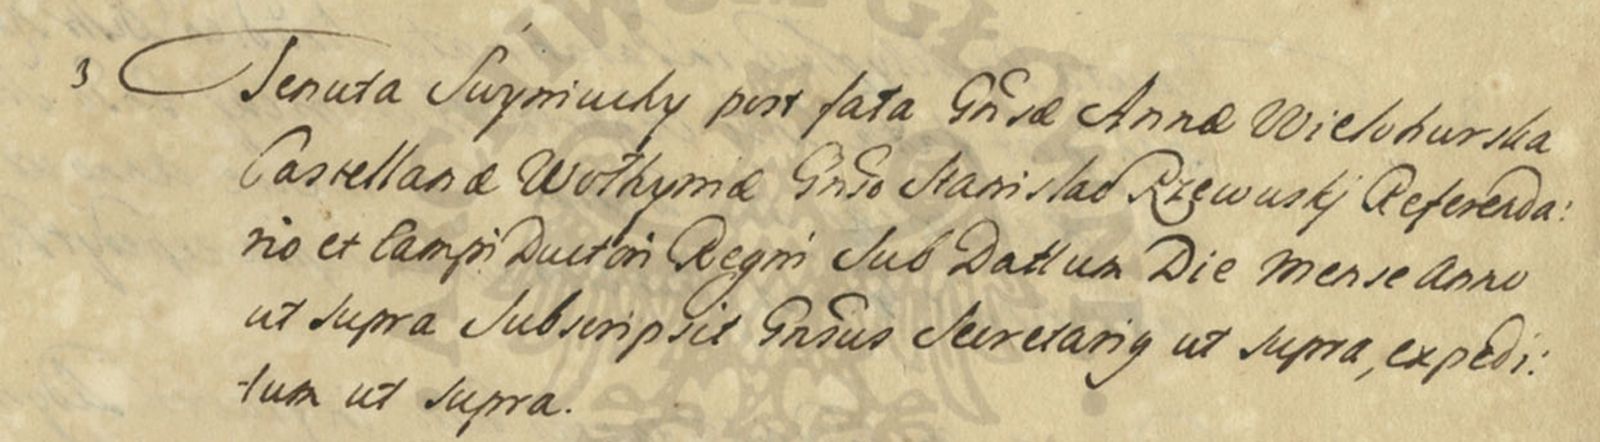 3 Tenuta Swyniuchy post fata Gnsæ Annæ Wielohurska
Castellanæ Wołhyniæ Gnso Stanislao Rzewuskj Referenda:
rio et Campi Ductori Regni Sub Dattum Die Mense Anno
ut supra Subscripsit Gnsus Secretariq ut supra, expedi:
tum ut supra.